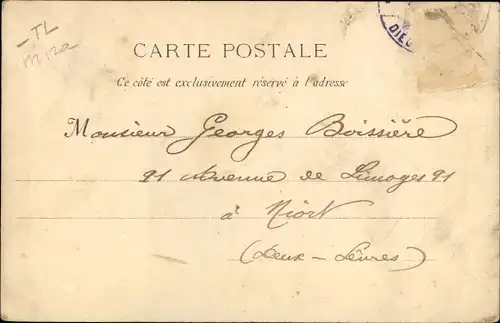 TL
DIE
CARTE POSTALE
Ce côté est exclusivement réservé à l'adresse
Monsieur Georges Boissière
91 Avenue de Limoges 91
à Niort
(Deux-Sèvres)